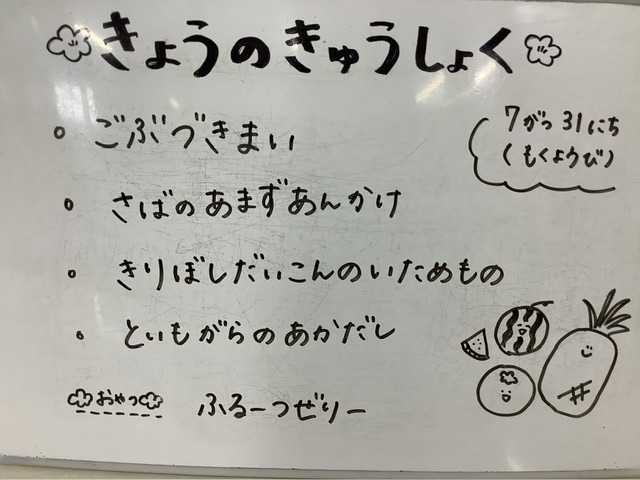 きょうのきゅうしょく
7がつ31にち
(もくようび)
ごぶづきまい
さばのあまずあんかけ
きりぼしだいこんのいためもの
といもがらのあかだし
おやつ ふるーつぜりー